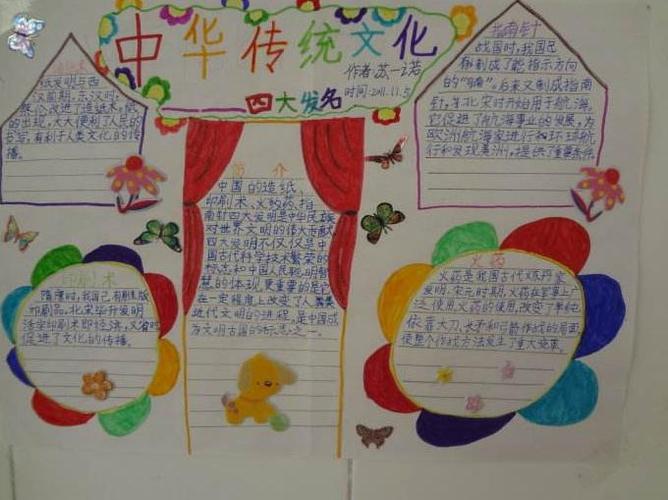 中华传统文化
作者:苏一诺
时间:2011.11.5
四大发名
纸发明与西
汉前期,东汉时,
蔡伦改进了造纸术,纸
的出现,大大便利了人民的
书写,有利于人类文化的传
播。
指南针
战国时,我国已
制成了能指示方向
的"司南",后来又制成指南
针,北宋时开始用于航海。
它促进了航海事业的发展,为
欧洲航海家进行环球航
行和发现美洲,提供了重要条件
简介
中国的造纸、
印刷术、火药、指
南针四大发明是中华民族
对世界文明的伟大贡献
四大发明不仅仅是中
国古代科学技术繁荣的
标志和中国人民聪明智
慧的体现,更重要的是它
在一定程度上改变了人类
近代文明的进程,是中国成
为文明古国的标志之一。
印刷术
隋唐时,我国已有雕版
印刷品。北宋毕升发明
活字印刷术即经济,又省时
促进了文化的传播。
火药
火药是我国古代炼丹家
发明,宋元时期,火药在军事上
泛使用,火药的使用,改变了单纯
依靠大刀、长矛和弓箭作战的局面
使整个作战方法发生了重大变革。